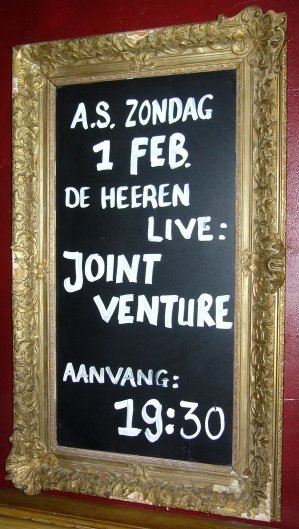 A.S. ZONDAG
1 FEB.
DE HEEREN
LIVE:
JOINT
VENTURE
AANVANG:
19:30